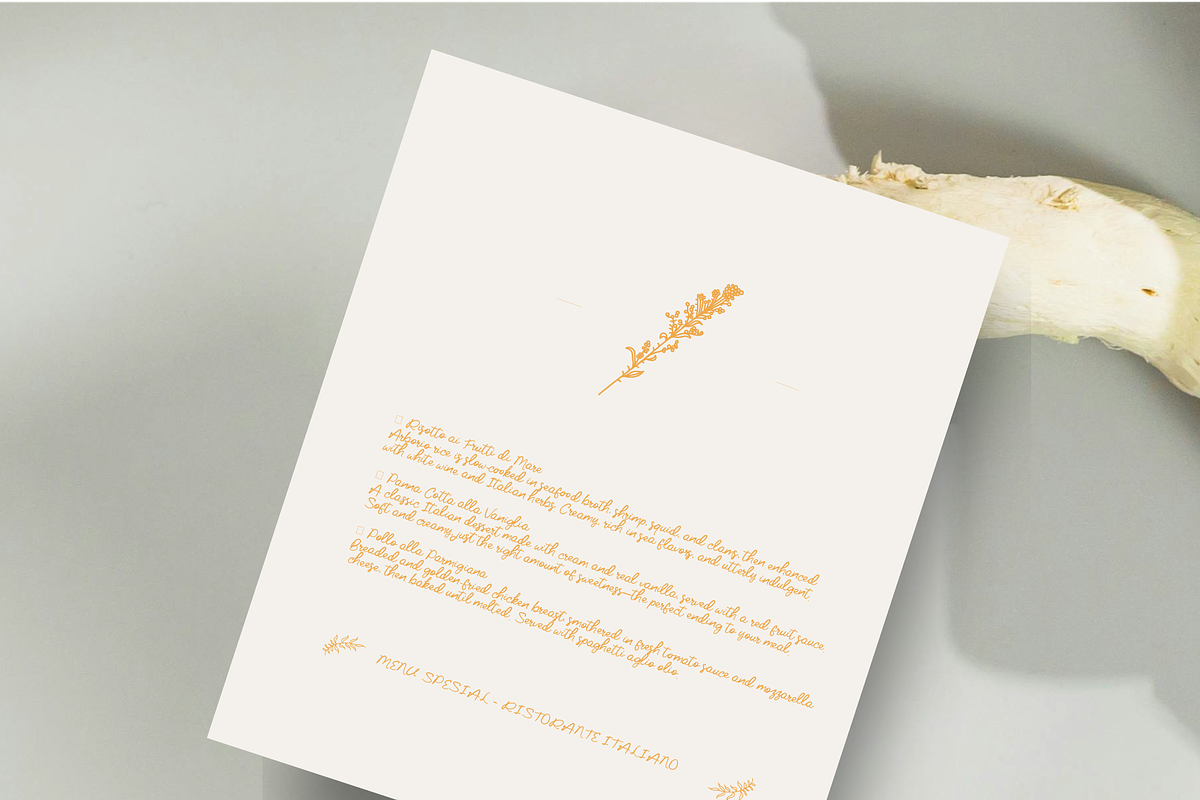 Risotto ai Frutti di Mare
Arborio rice is slow-cooked in seafood broth, shrimp, squid, and clams, then enhanced
with white wine and Italian herbs. Creamy, rich in sea flavors, and utterly indulgent.
Panna Cotta alla Vaniglia
A classic Italian dessert made with cream and real vanilla, served with a red fruit sauce.
Soft and creamy, just the right amount of sweetness—the perfect ending to your meal
Pollo alla Parmigiana
Breaded and golden-fried chicken breast, smothered in fresh tomato sauce and mozzarella
cheese, then baked until melted. Served with spaghetti aglio olio.
MENU SPESIAL - RISTORANTE ITALIANO